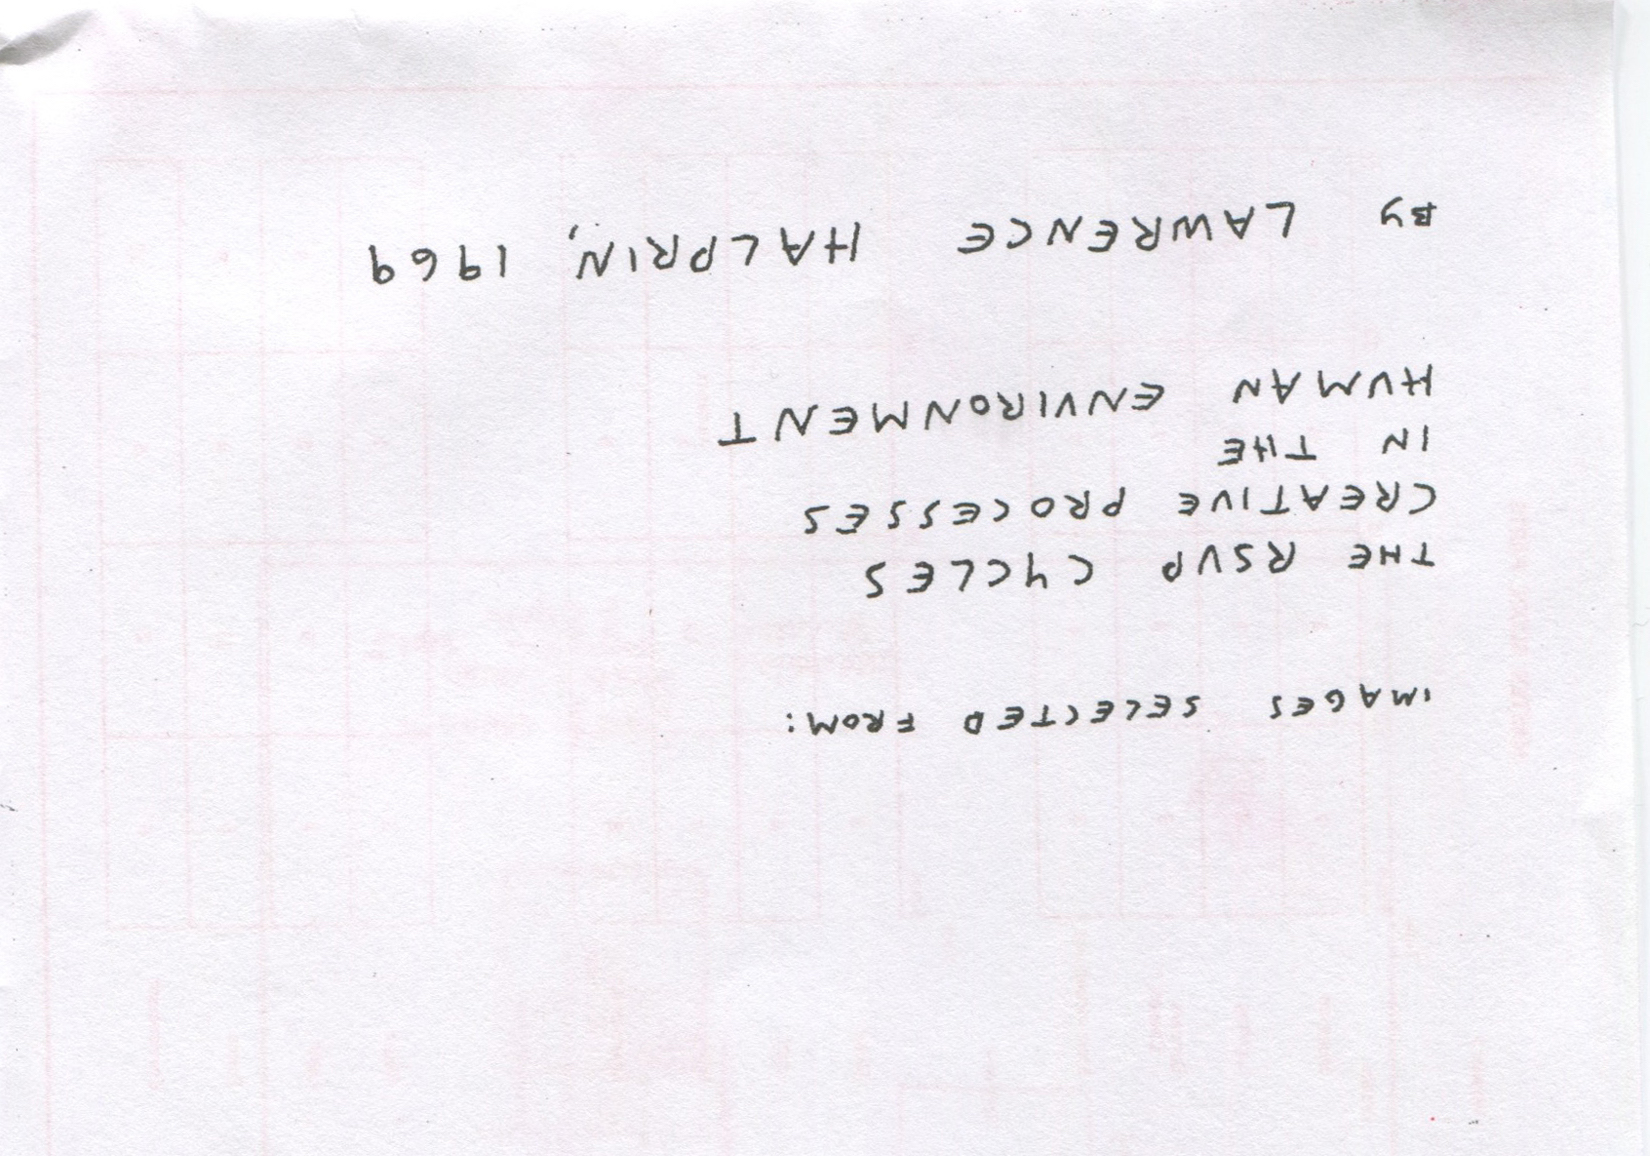 IMAGES SELECTED FROM:
THE RSVP CYCLES
CREATIVE PROCESSES
IN THE
HUMAN ENVIRONMENT
BY LAWRENCE HALPRIN, 1969